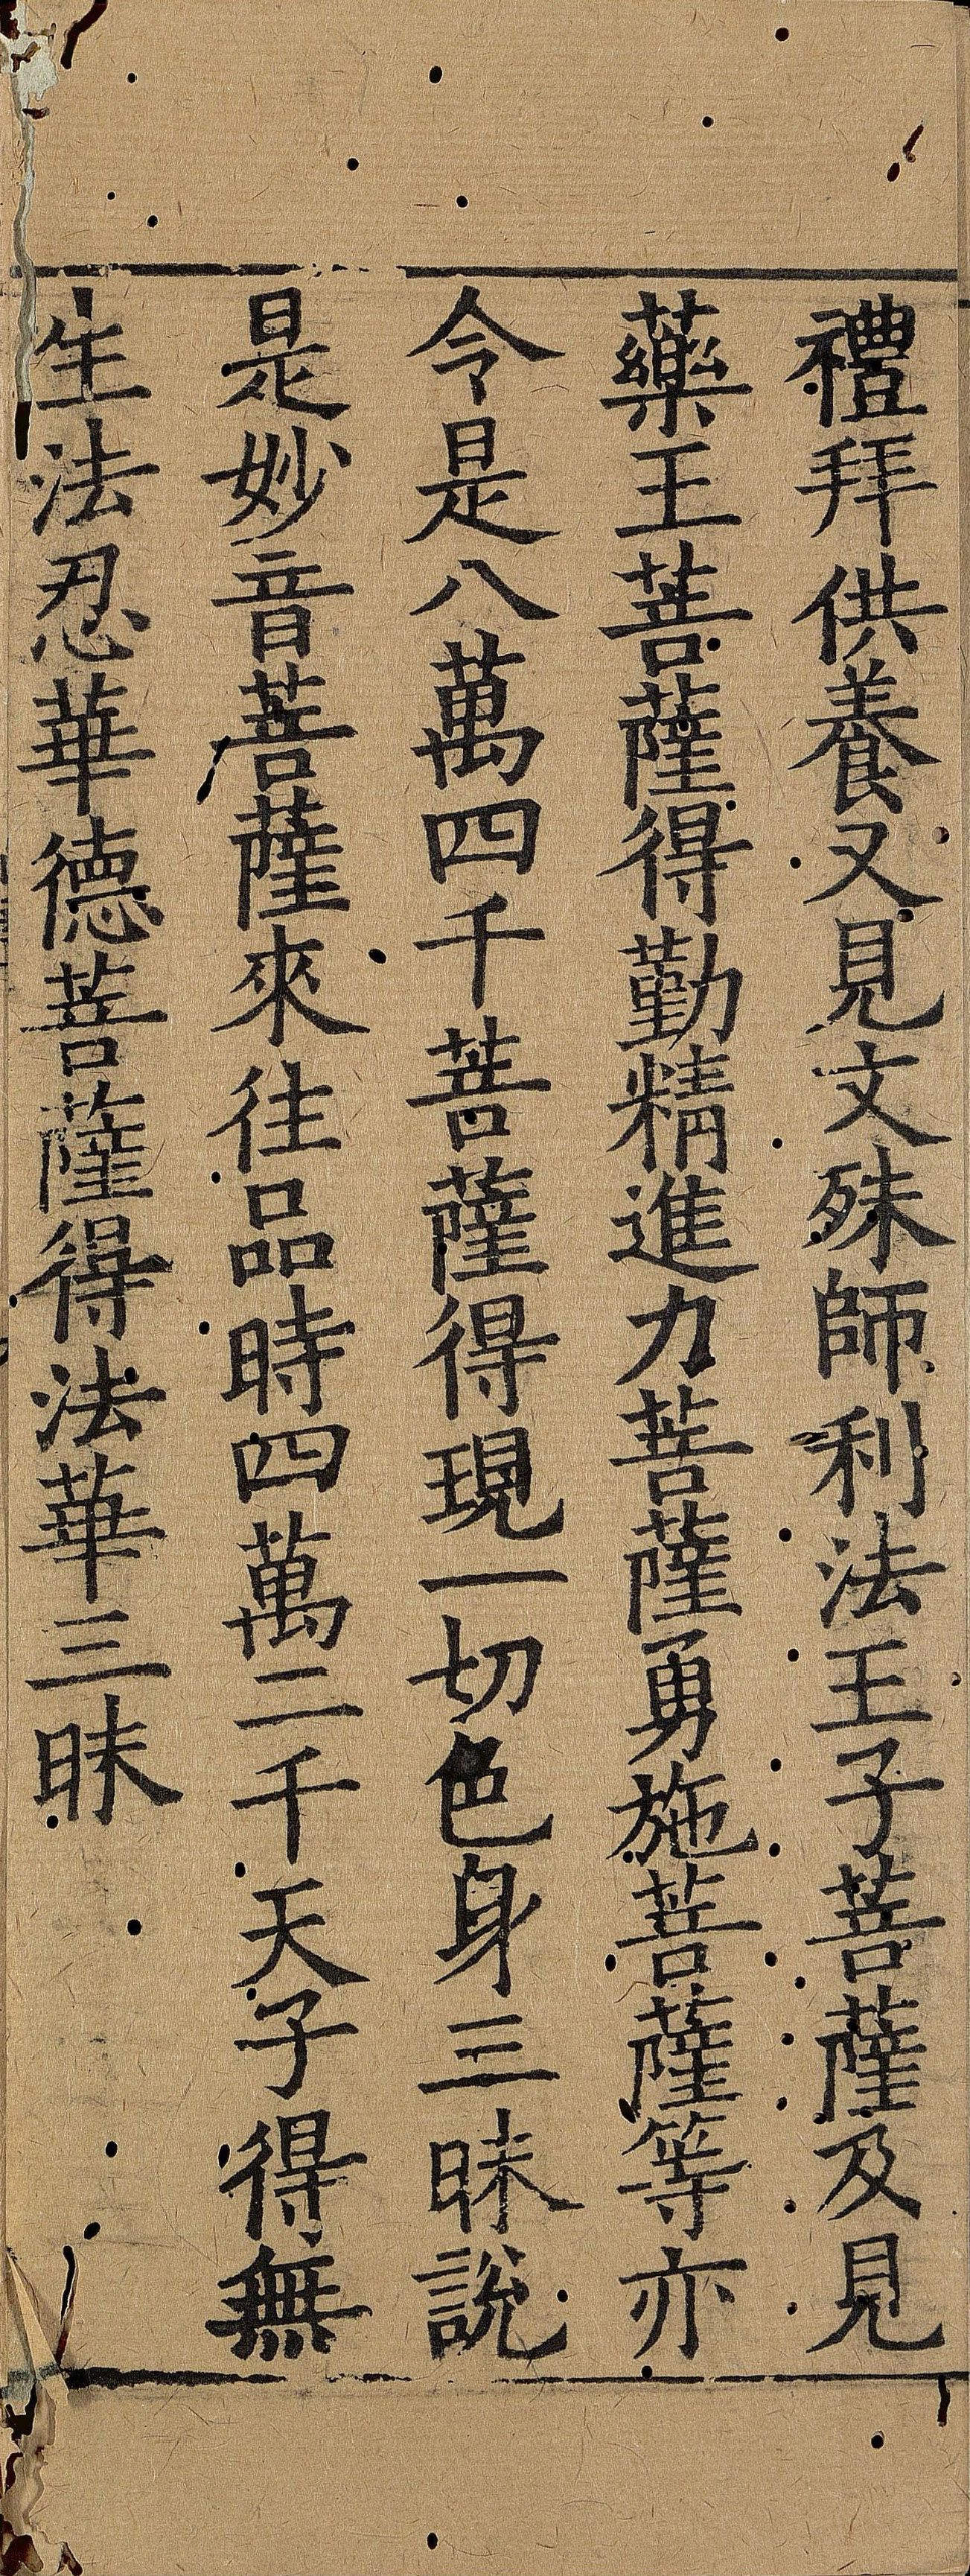 禮拜供養又見文殊師利法王子菩薩及見
藥王菩薩得勤精進力菩薩勇施菩薩等亦
令是八萬四千菩薩得現一切色身三昧說
是妙音菩薩來往品時四萬二千天子得無
生法忍華德菩薩得法華三昧